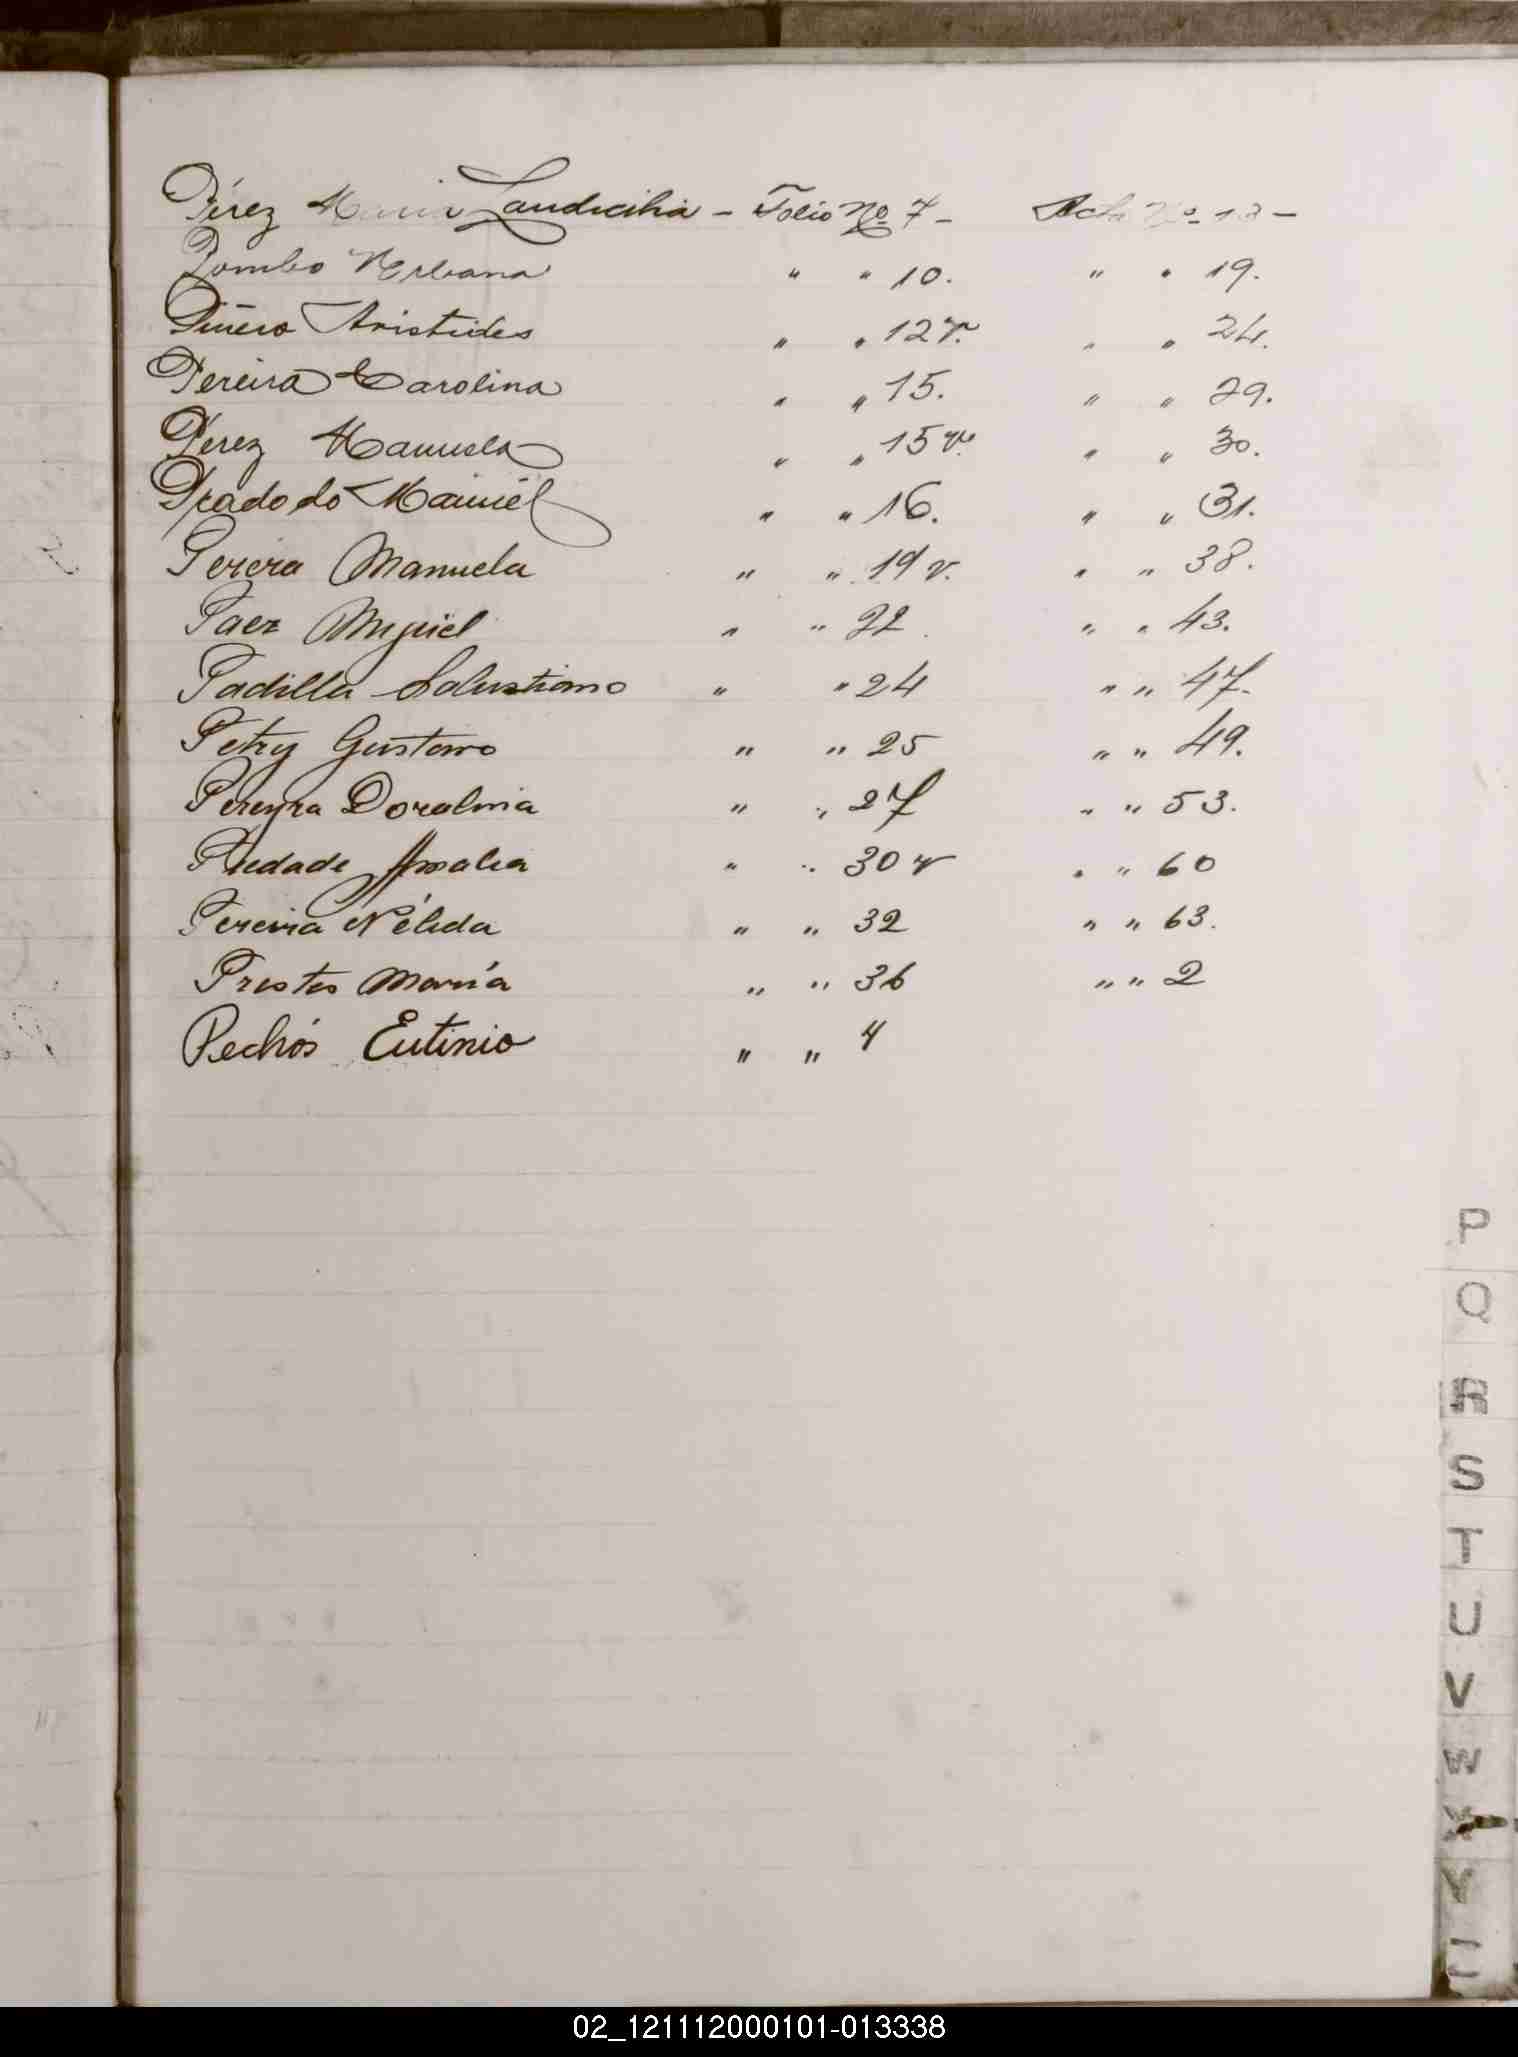 Pérez Maria Laudicilia - Folio Nº 7 - Acta Nº 13 -
Pombo Urbana " " 10. " " 19.
Piñero Aristides " " 12 v. " " 24.
Pereira Carolina " " 15. " " 29.
Pérez Manuela " " 15 v. " " 30.
Prado do Manuel " " 16. " " 31.
Pereira Manuela " " 19 v. " " 38.
Paez Miguel " " 22. " " 43.
Padilla Salustiano " " 24 " " 47.
Petry Gustavo " " 25 " " 49.
Pereyra Doralina " " 27 " " 53.
Piedade Amalia " " 30 v " " 60
Pereira Nélida " " 32 " " 63.
Prestes María " " 36 " " 2
Pechós Eutinio " " 4
P
Q
R
S
T
U
V
W
X
Y
02_121112000101-013338